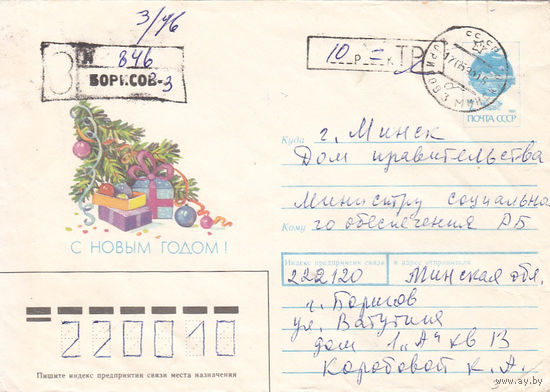 3/46
З № 846
БОРИСОВ-3
10 р = к ТР
СССР
ПОЧТА СССР
Куда г. Минск
Дом правительства
Министру социально
Кому го обеспечения РБ
С НОВЫМ ГОДОМ!
Индекс предприятия связи и адрес отправителя
222120 Минская обл.
г. Борисов
ул. Ватутина
дом 1 „А" кв 13
Коробовой К. А.
220010
Пишите индекс предприятия связи места назначения
www.ay.by